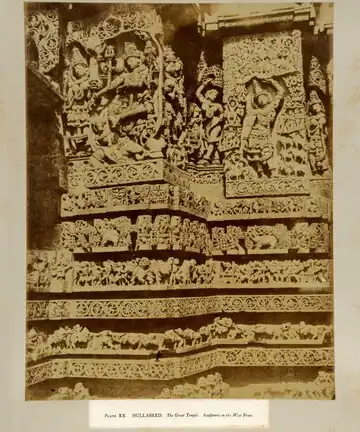 PLATE XX HULLABEED. The Great Temple. Sculptures on the West Front.